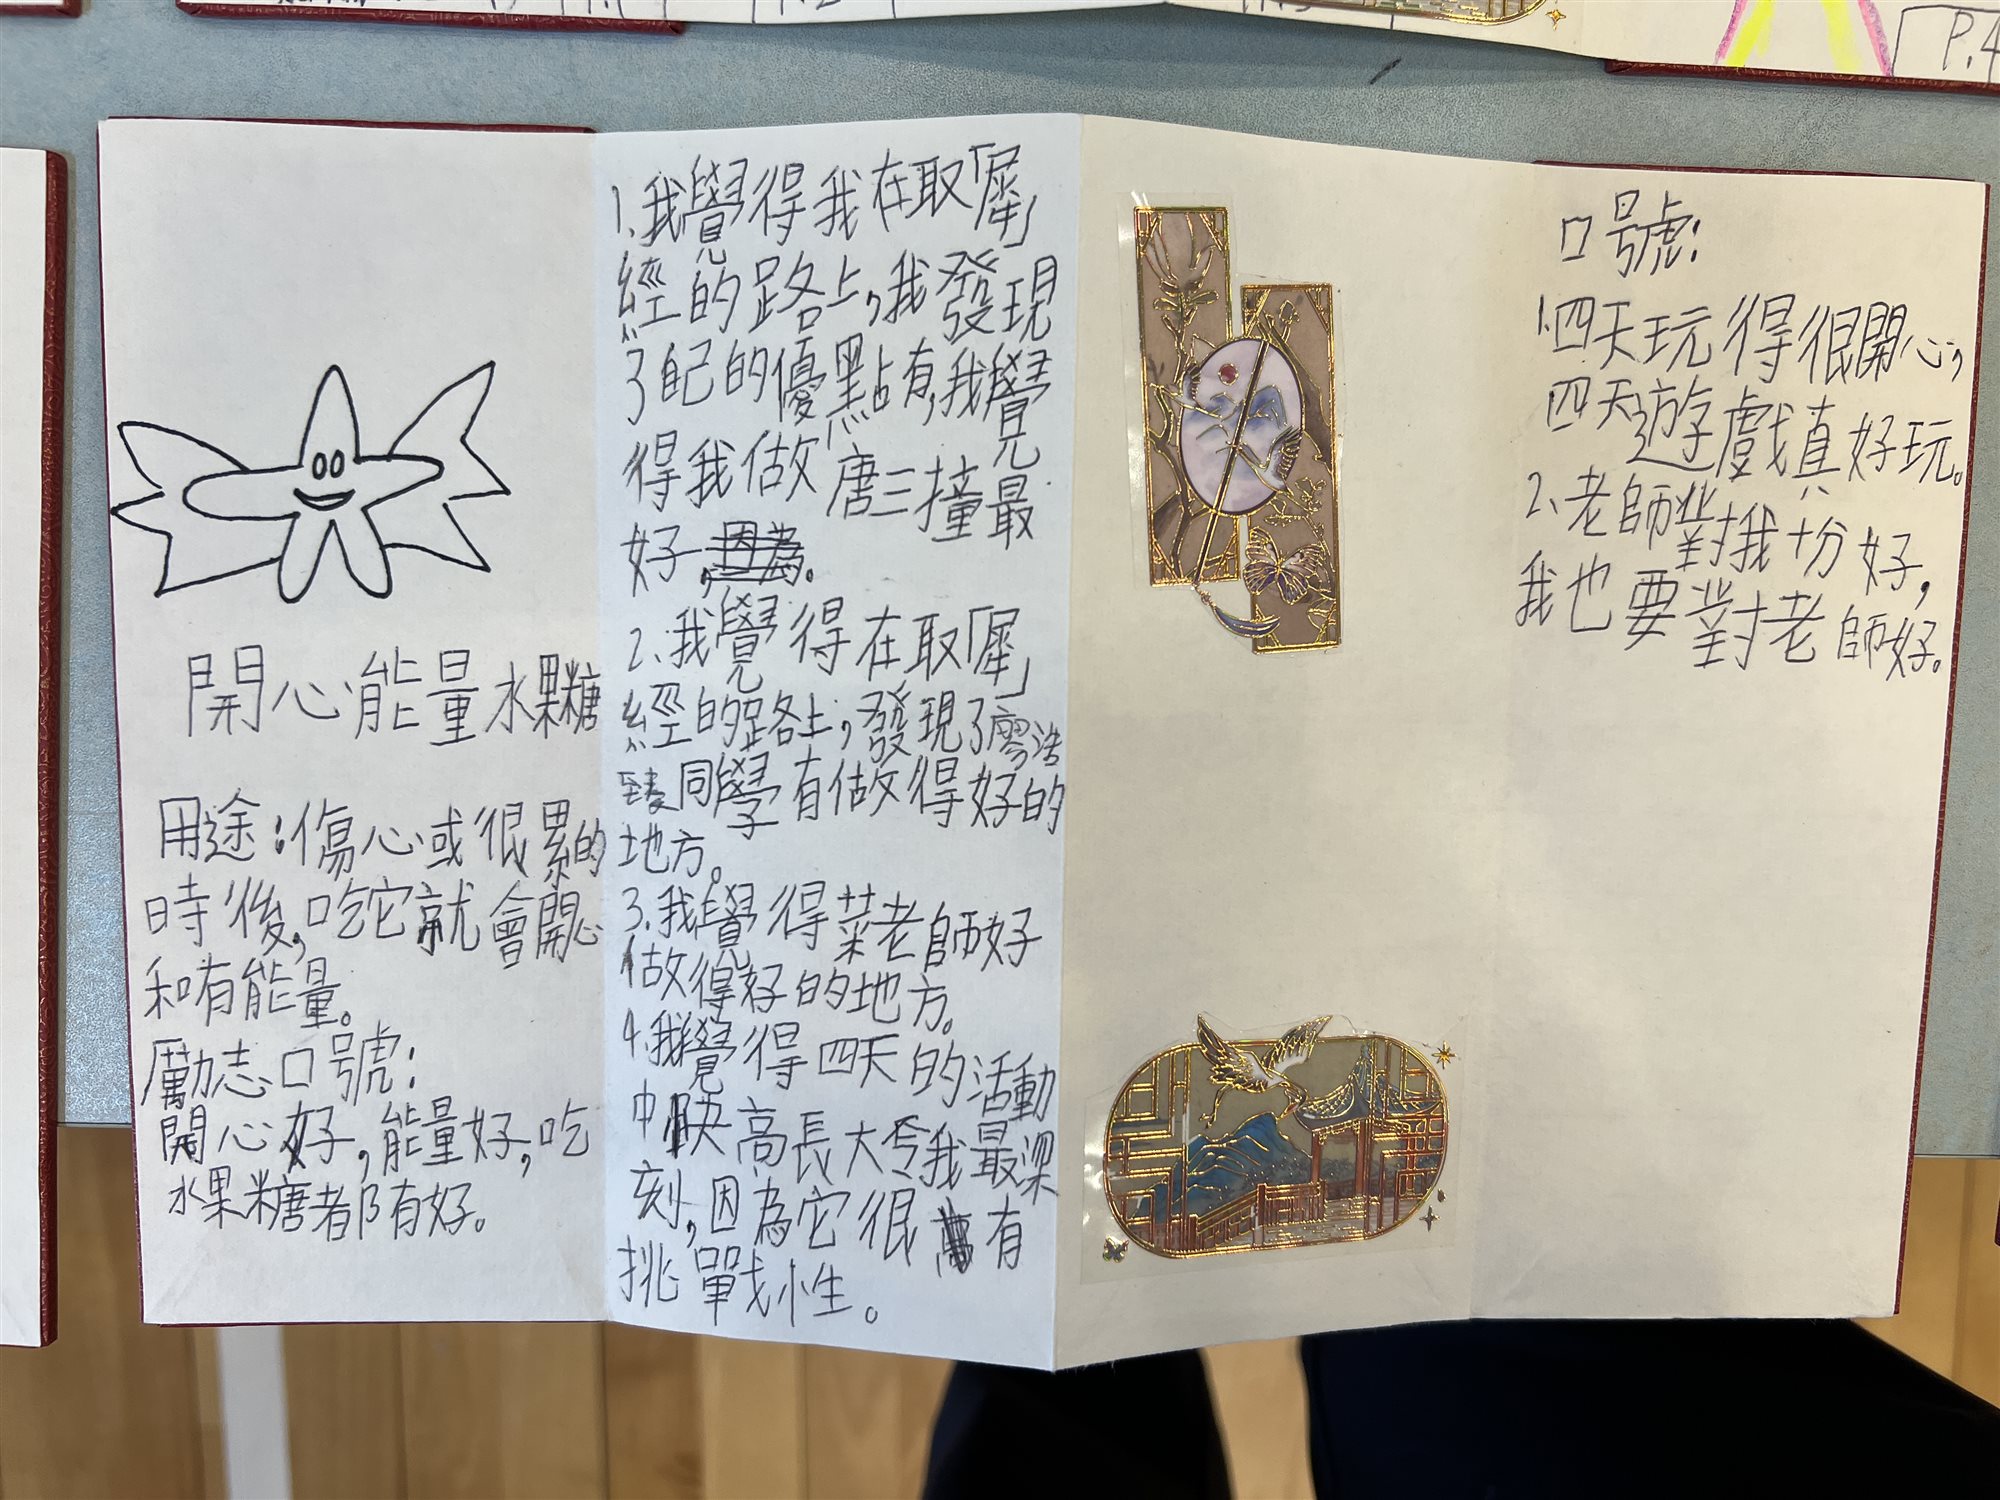 P.4
開心能量水果糖
用途:傷心或很累的
時後,吃它就會開心
和有能量。
厲志口號:
開心好,能量好,吃
水果糖都有好。
1.我覺得我在取「犀」
經的路上,我發現
了自己的優點有,我覺
得我做唐三撞最
好,因為。
2.我覺得在取「犀」
經的路上,發現了廖浩
同學有做得好的
地方。
3.我覺得菜老師好
做得好的地方。
4.我覺得四天的活動
中快高長大令我最深
刻,因為它很有
挑戰性。
口號:
1.四天玩得很開心,
四天遊戲真好玩。
2.老師對我十分好,
我也要對老師好。